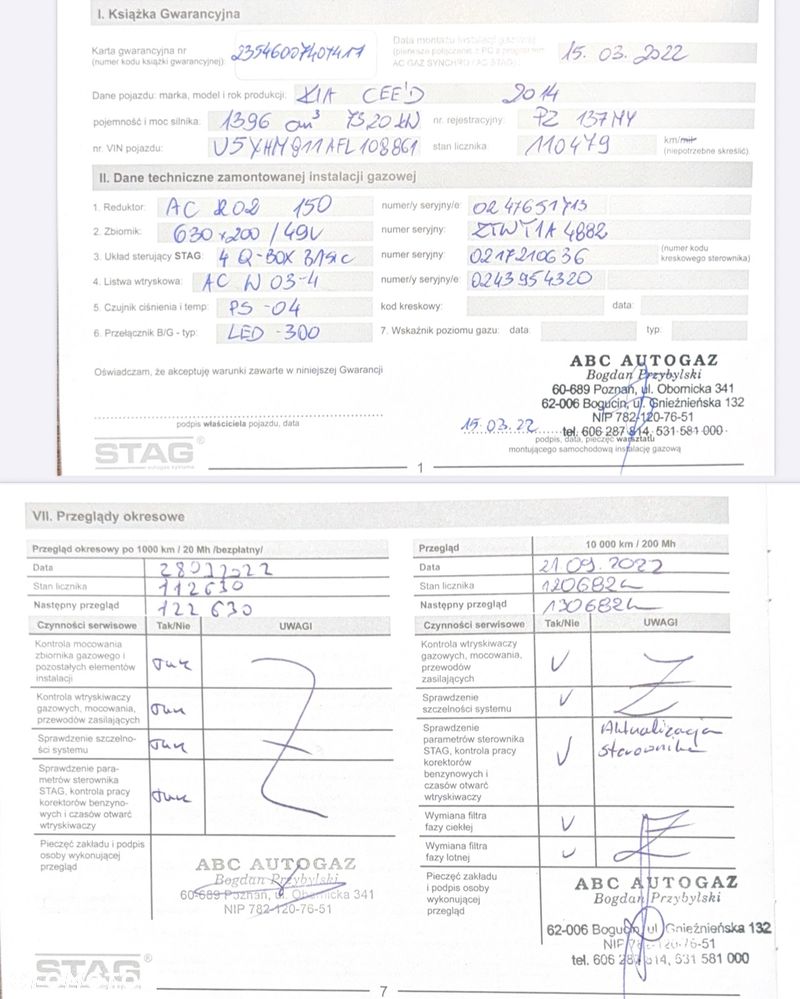 I. Książka Gwarancyjna
Karta gwarancyjna nr
(numer kodu książki gwarancyjnej):
Data montażu instalacji gazowej
15. 03. 2022
Dane pojazdu: marka, model i rok produkcji: KIA CEE'D 2014
pojemność i moc silnika: 1396 cm³ 73.20 kW nr. rejestracyjny: PZ 137MY
nr. VIN pojazdu: U5YHM811AFL108861 stan licznika 110479 km/mil
(niepotrzebne skreślić)
II. Dane techniczne zamontowanej instalacji gazowej
1. Reduktor: AC R02 150 numer/y seryjny/e: 0247651713
2. Zbiornik: 630x200 / 49L numer seryjny: ZTWT1A 4882
3. Układ sterujący STAG: 4 Q-BOX BASIC numer seryjny: 0217210636 (numer kodu
kreskowego sterownika)
4. Listwa wtryskowa: AC W 03-4 numer/y seryjny/e: 0243954320
5. Czujnik ciśnienia i temp: PS-04 kod kreskowy: data:
6. Przełącznik B/G - typ: LED-300 7. Wskaźnik poziomu gazu: data: typ:
Oświadczam, że akceptuję warunki zawarte w niniejszej Gwarancji
podpis właściciela pojazdu, data
ABC AUTOGAZ
Bogdan Przybylski
60-689 Poznań, ul. Obornicka 341
62-006 Bogucin, ul. Gnieźnieńska 132
NIP 782-120-76-51
15.03.22 tel. 606 287 814, 531 581 000
podpis, data, pieczęć warsztatu
montującego samochodową instalację gazową
STAG®
1
VII. Przeglądy okresowe
Przegląd okresowy po 1000 km / 20 Mh /bezpłatny/
Data
Stan licznika 112630
Następny przegląd 122 630
Czynności serwisowe Tak/Nie UWAGI
Kontrola mocowania
zbiornika gazowego i
pozostałych elementów
instalacji Tak
Kontrola wtryskiwaczy
gazowych, mocowania,
przewodów zasilających Tak
Sprawdzenie szczelno-
ści systemu Tak
Sprawdzenie para-
metrów sterownika
STAG, kontrola pracy
korektorów benzyno-
wych i czasów otwarć
wtryskiwaczy Tak
Pieczęć zakładu i podpis
osoby wykonującej
przegląd
ABC AUTOGAZ
Bogdan Przybylski
60-689 Poznań, ul. Obornicka 341
NIP 782-120-76-51
STAG®
Przegląd 10 000 km / 200 Mh
Data 21.09.2022
Stan licznika 120682
Następny przegląd 130682
Czynności serwisowe Tak/Nie UWAGI
Kontrola wtryskiwaczy
gazowych, mocowania,
przewodów
zasilających
Sprawdzenie
szczelności systemu
Sprawdzenie
parametrów sterownika
STAG, kontrola pracy
korektorów
benzynowych i
czasów otwarć
wtryskiwaczy
Aktualizacja
sterownika
Wymiana filtra
fazy ciekłej
Wymiana filtra
fazy lotnej
Pieczęć zakładu
i podpis osoby
wykonującej
przegląd
ABC AUTOGAZ
Bogdan Przybylski
62-006 Bogucin, ul. Gnieźnieńska 132
NIP 782-120-76-51
tel. 606 287 814, 531 581 000
7